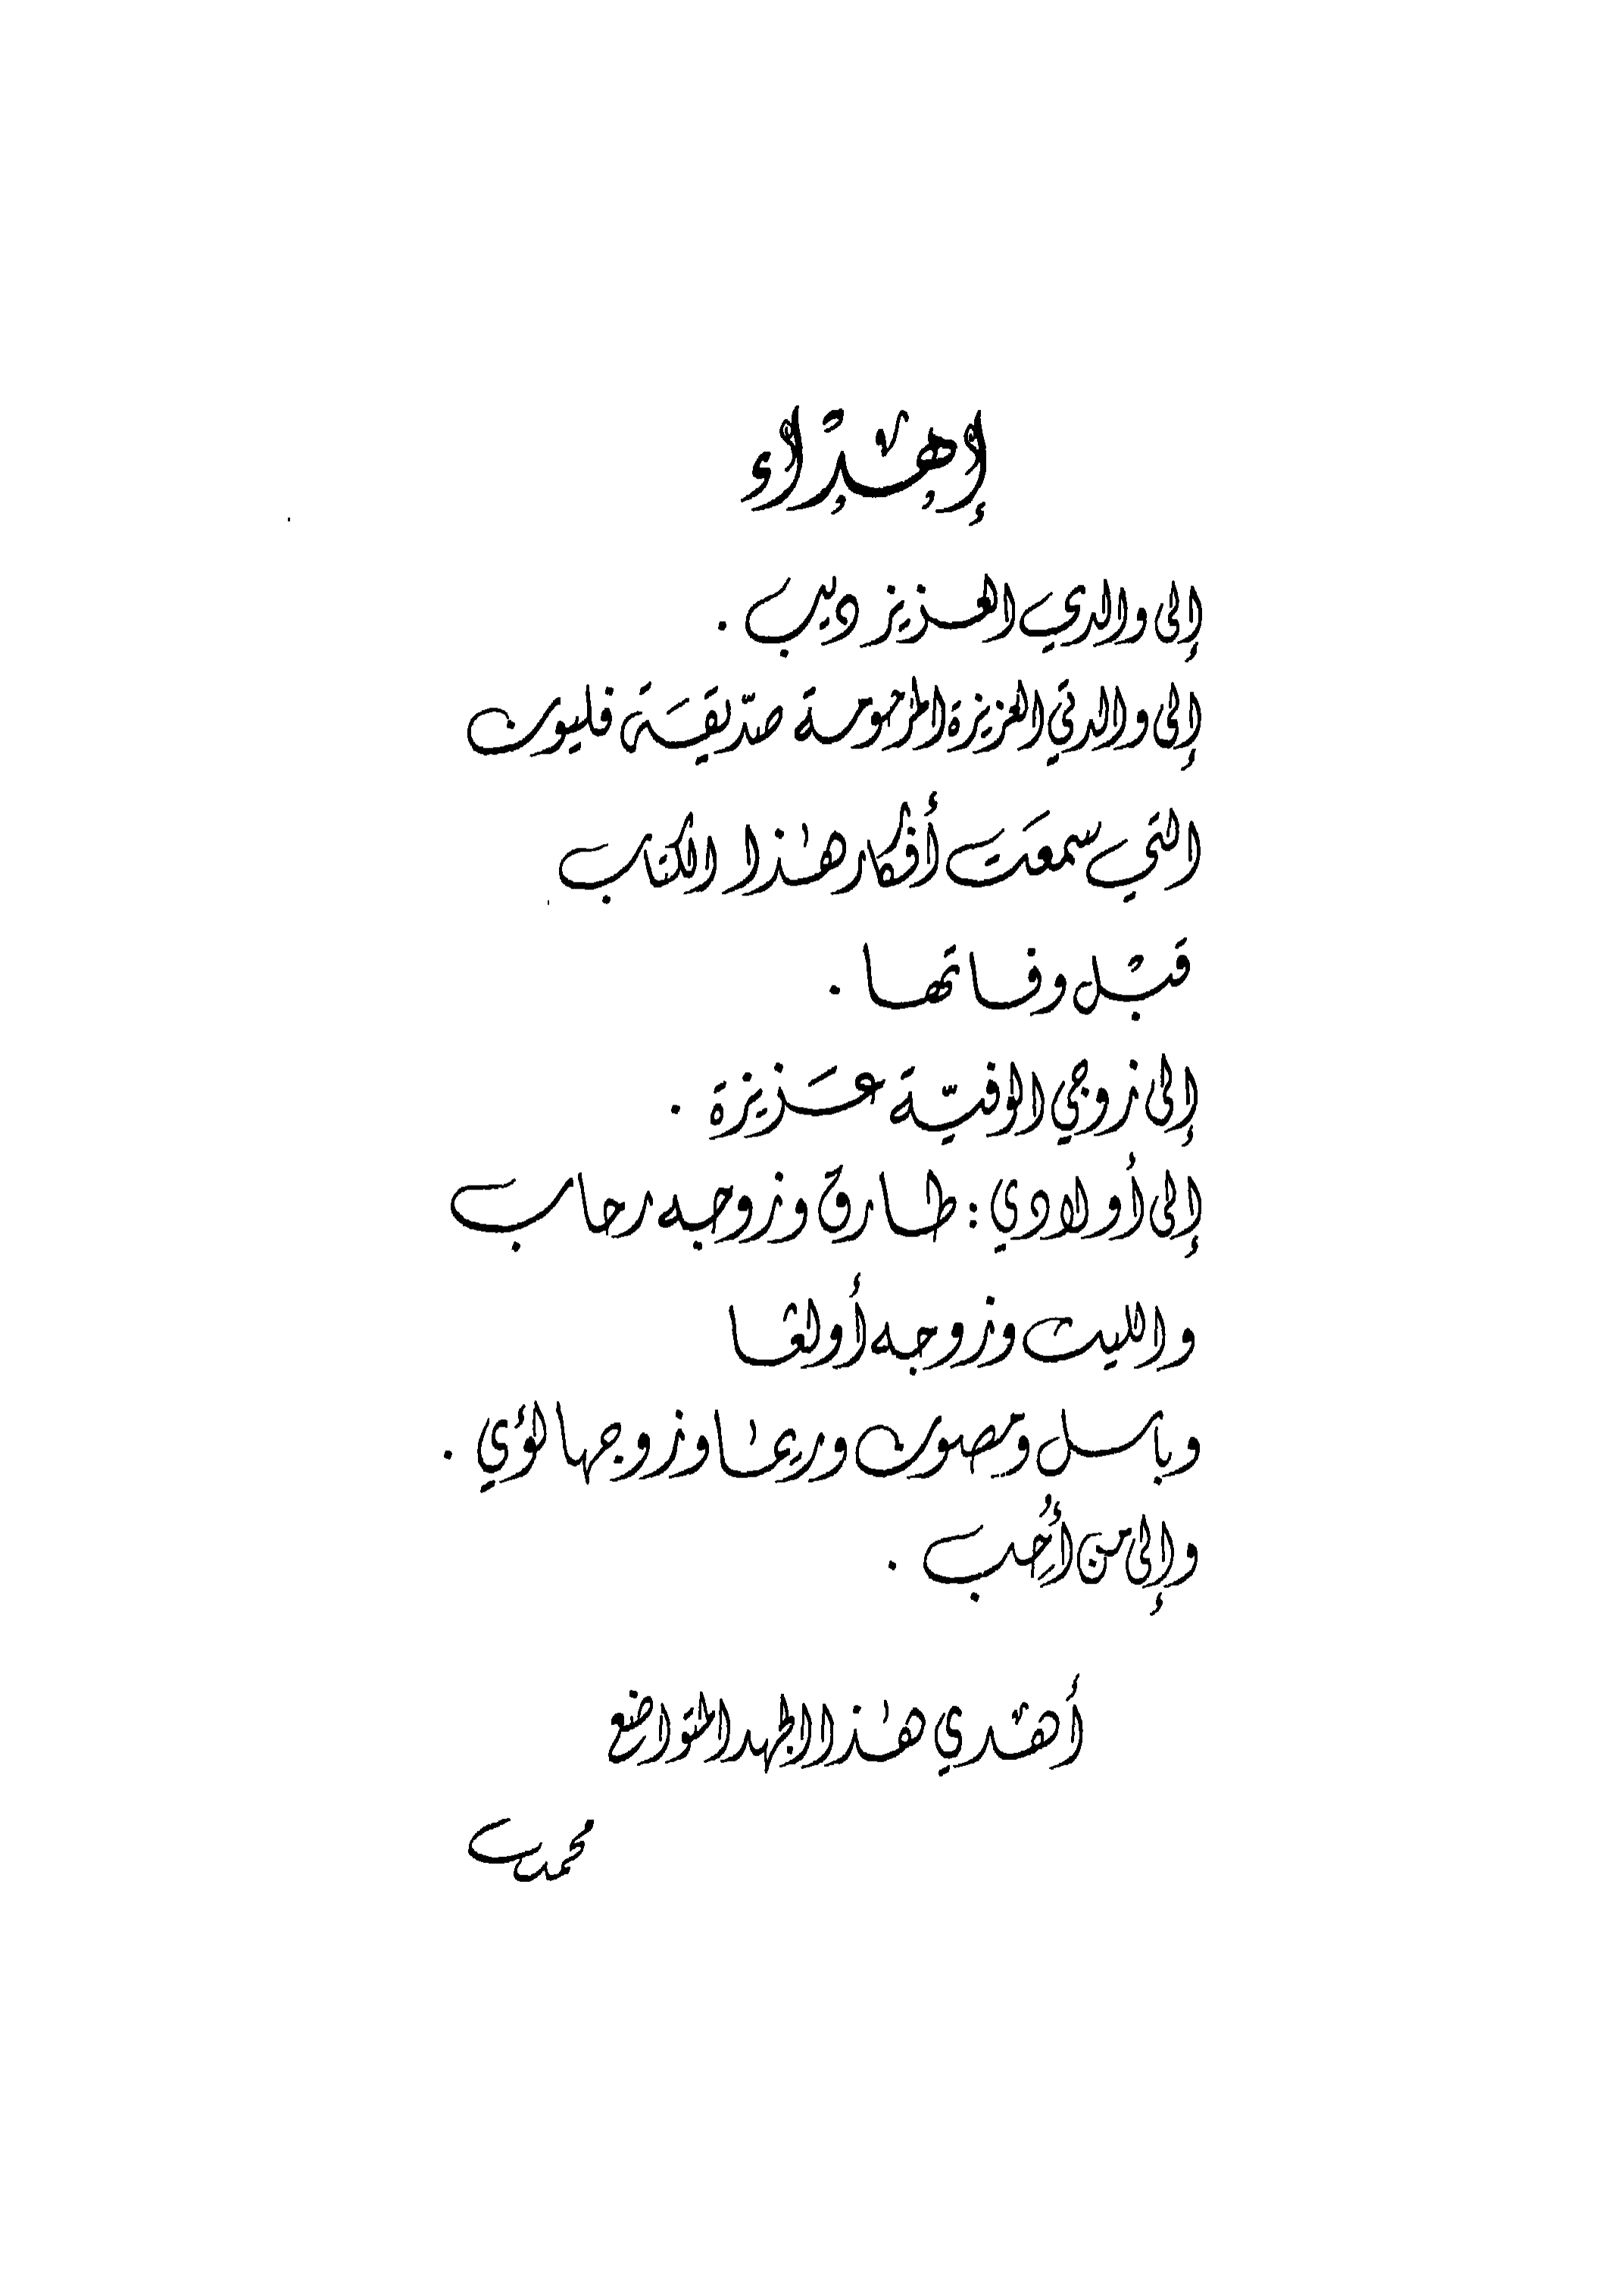 إهداء
إلى والدي العزيز ديب .
إلى والدتي العزيزة المرحومة صدّيقة فليون
التي سمعت أفكار هذا الكتاب
قبل وفاتها .
إلى زوجي الوفيّة عزيزة .
إلى أولادي : طارق وزوجه رحاب
والليث وزوجه أولغا
وباسل ومصون وريما وزوجها لؤي .
وإلى من أُحِب .
أهدي هذا الجهد المتواضع
محمد